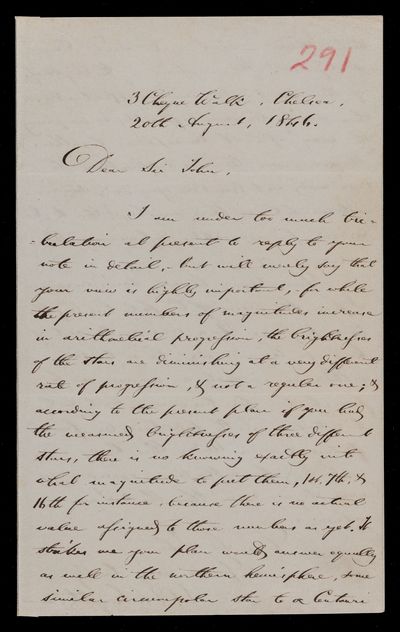 291
3 Cheyne Walk, Chelsea,
20th August, 1846.
Dear Sir John,
I am under too much tri-
-bulation at present to reply to your
note in detail, - but will merely say that
your view is highly important, - for while
the present numbers of magnitudes increase
in arithmetical progression, the brightnesses
of the stars are diminishing at a very different
rate of progression, & not a regular one; &
according to the present plan if you had
the measured brightnesses of three different
stars, there is no knowing exactly into
what magnitude to put them, 1st, 7th, &
16th for instance, because there is no actual
value assigned to those numbers as yet. It
strikes me your plan would answer equally
as well in the northern hemisphere, some
similar circumpolar star to α Centauri